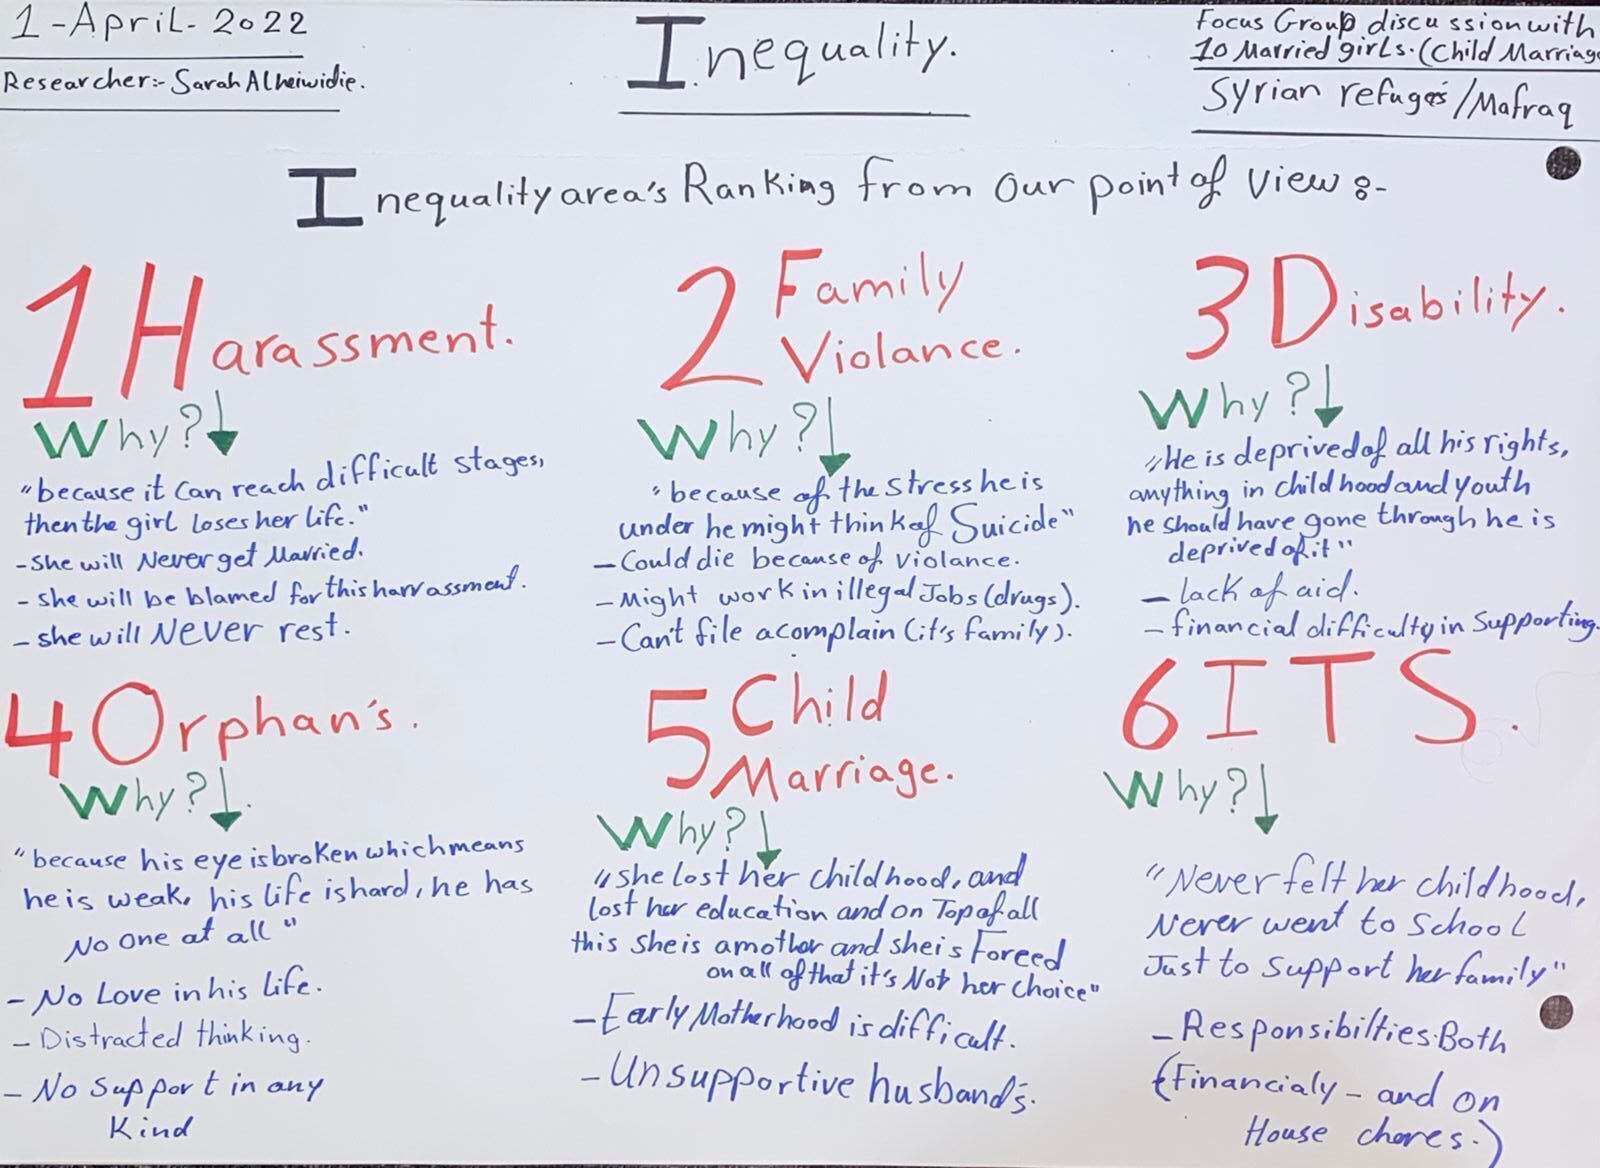 1-April-2022
Researcher:- Sarah Alheiwidie.
Inequality.
Focus Group discussion with
10 Married girls. (Child Marriage
Syrian refuges/Mafraq
Inequality area's Ranking from our point of view :-
1 Harassment.
Why?
"because it can reach difficult stages,
then the girl loses her life."
- she will Never get Married.
- she will be blamed for this harrassment.
- she will NEVER rest.
2 Family
Violance.
Why?
"because of the stress he is
under he might think of Suicide"
- Could die because of violance.
- Might work in illegal Jobs (drugs).
- Can't file a complain (it's family).
3 Disability.
Why?
"He is deprived of all his rights,
anything in childhood and youth
he should have gone through he is
deprived of it"
- lack of aid.
- financial difficulty in supporting.
4 Orphan's.
Why?
"because his eye is broken which means
he is weak, his life is hard, he has
No one at all"
- No Love in his life.
- Distracted thinking.
- No support in any
Kind
5 Child
Marriage.
Why?
"she lost her childhood, and
lost her education and on Top of all
this she is a mother and she is Forced
on all of that it's Not her choice"
- Early Motherhood is difficult.
- Unsupportive husband's.
6 ITS.
Why?
"Never felt her childhood,
Never went to School
Just to support her family"
- Responsibilties Both
(Financialy - and on
House chores.)